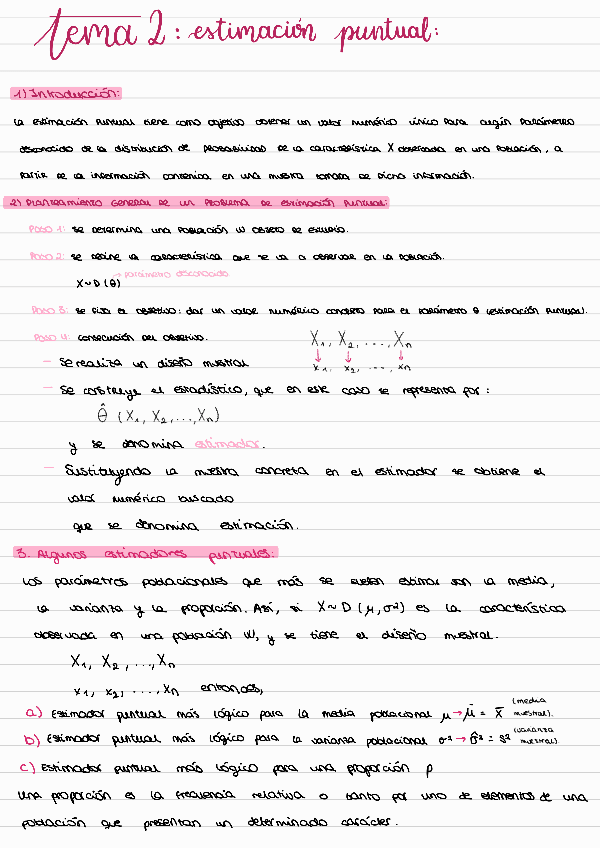 tema 2: estimación puntual:
1) Introducción:
La estimación puntual tiene como objetivo obtener un valor numérico único para algún parámetro
desconocido de la distribución de probabilidad de la característica X observada en una población, a
partir de la información contenida en una muestra tomada de dicha información.
2) Planteamiento general de un problema de estimación puntual:
Paso 1: se determina una población W objeto de estudio.
Paso 2: se define la característica que se va a observar en la población.
X~D(θ) → parámetro desconocido
Paso 3: se fija el objetivo: dar un valor numérico concreto para el parámetro θ (estimación puntual).
Paso 4: consecución del objetivo.
X₁, X₂, ..., Xn
— Se realiza un diseño muestral
↓ ↓ ↓
x₁, x₂, ..., xn
— Se construye el estadístico, que en este caso se representa por:
θ̂ (X₁, X₂, ..., Xn)
y se denomina estimador.
— Sustituyendo la muestra concreta en el estimador se obtiene el
valor numérico buscado
que se denomina estimación.
3. Algunos estimadores puntuales:
Los parámetros poblacionales que más se suelen estimar son la media,
la varianza y la proporción. Así, si X~D(μ,σ²) es la característica
observada en una población W, y se tiene el diseño muestral.
X₁, X₂, ..., Xn
x₁, x₂, ... Xn entonces,
a) Estimador puntual más lógico para la media poblacional μ → μ̂ = x̄ (media muestral).
b) Estimador puntual más lógico para la varianza poblacional σ² → σ̂² = S² (varianza muestral)
c) Estimador puntual más lógico para una proporción p
Una proporción es la frecuencia relativa o tanto por uno de elementos de una
población que presentan un determinado carácter.